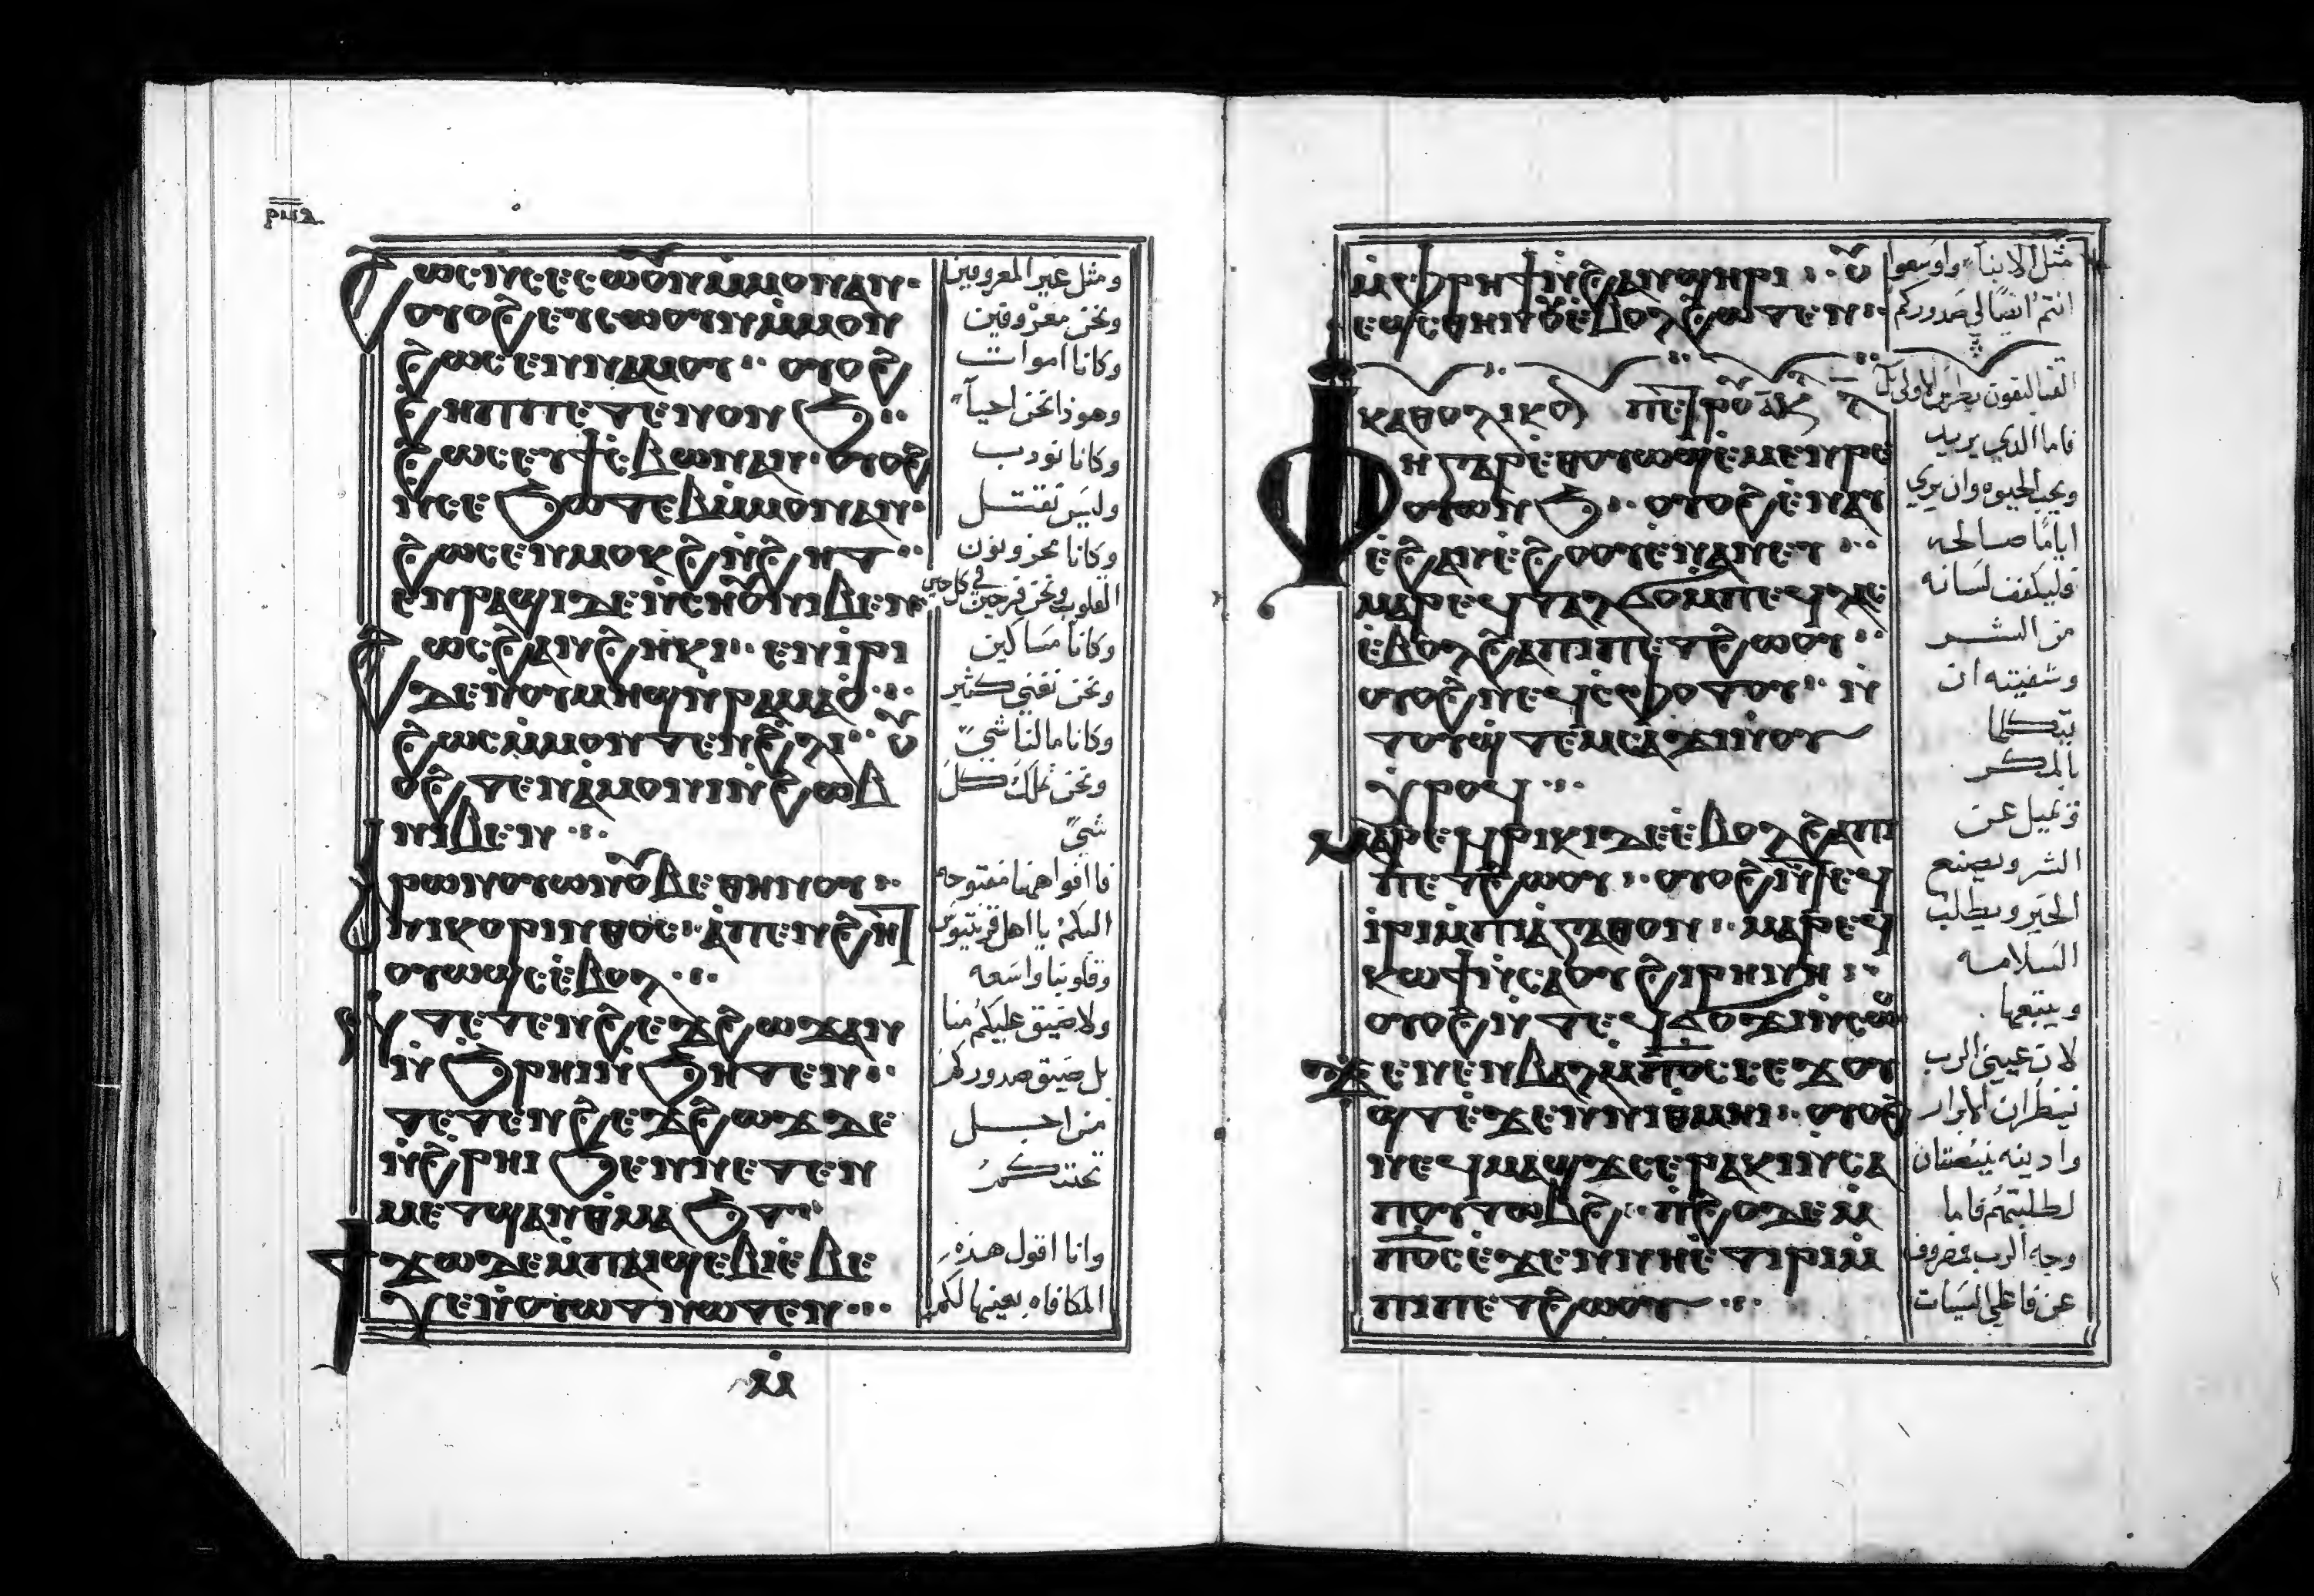 ⲣⲛ̅ⲍ̅
ϩⲱⲥ ⲛ̀ⲥⲉⲥⲱⲟⲩⲛ ⲙⲙⲟⲛ ⲁⲛ·
ⲟⲩⲟϩ ⲉⲩⲥⲱⲟⲩⲛ ⲙ̀ⲙⲟⲛ
ϩⲱⲥ ⲉⲛⲛⲁⲙⲟⲩ ⁚ ⲟⲩⲟϩ
ϩⲏⲡⲡⲉ ⲧⲉⲛⲟⲛϧ ⁚
ϩⲱⲥ ⲉⲩϯⲥ̀ⲃⲱ ⲛⲁⲛ· ⲟⲩⲟϩ
ⲛⲥⲉϧⲱⲧⲉⲃ ⲙ̀ⲙⲟⲛ ⲁⲛ·
ϩⲱⲥ ⲉⲛⲙⲟⲕϩ ⲛ̀ϩⲏⲧ ⁚
ⲉⲛⲣⲁϣⲓ ⲇⲉ ⲛ̀ⲥⲏⲟⲩ ⲛⲓⲃⲉⲛ
ϩⲱⲥ ϩⲁⲛϩⲏⲕⲓ ⁚ ⲉⲛⲓ̀ⲣⲓ
ⲇⲉ ⲛ̀ⲟⲩⲙⲏϣ ⲛ̀ⲣⲁⲙⲁⲟ̀ ⁖
ϩⲱⲥ ⲙ̀ⲙⲟⲛ ⲧⲉⲛ ϩ̀ⲗⲓ ⁚ ⲟⲩ
ⲟϩ ⲧⲉⲛⲁ̀ⲙⲟⲛⲓ ⲛ̀ϩⲱⲃ
ⲛⲓⲃⲉⲛ ⁖
ⲣⲱⲛ ⲟⲩⲱⲛ ⲟⲩⲃⲉ ⲑⲏⲛⲟⲩ ⁚
ⲛⲓⲕⲟⲣⲓⲛⲑⲟⲥ ⁚ ⲁ̀ⲡⲉⲛϩⲏⲧ
ⲟⲩⲱϣⲥ ⲉ̀ⲃⲟⲗ ⁖
ⲛ̀ⲧⲉⲧⲉⲛϩⲉϫϩⲱϫ ⲁⲛ
ⲛ̀ϧⲣⲏⲓ ⲛ̀ϧⲏⲧⲉⲛ ⁚
ⲧⲉⲧⲉⲛϩⲉϫϩⲱϫ ⲇⲉ
ⲛ̀ϩⲣⲏⲓ ϧⲉⲛ ⲛⲉⲧⲉⲛ
ⲙⲉⲧϣⲁⲛⲑⲙⲁϧⲧ ⁚
ϯϫⲱ ⲇⲉ ⲙ̀ⲡⲁⲓϣⲉⲃⲓⲉ̀ ⲃⲉ
ⲭⲉ ⲛ̀ⲟⲩⲱⲧ ⲛⲱⲧⲉⲛ ⁖
ⲙ̀
ومثل غير المعروفين
ونحن معروفين
وكاننا اموات
وهوذا نحن احيآ
وكاننا نودب
وليس نقتل
وكاننا محزونون
القلوب ونحن فرحين في كل حين
وكاننا مساكين
ونحن نغني كثير
وكاننا مالنا شيً
ونحن نملك كل
شيً
فاافواهنا مفتوحه
اليكم يا اهل قرنتيوس
وقلوبنا واسعه
ولا ضيق عليكم منا
بل ضيق صدوركم
من اجل
تحننكم
وانا اقول هذه
المكافاه بعينها لكم
ⲙ̀ⲫⲣⲏϯ ⲛ̀ϩⲁⲛϣⲏⲣⲓ ⁚ ⲟⲩ
ⲉϣⲥ ⲑⲏⲛⲟⲩ ⲉ̀ⲃⲟⲗ ϩⲱⲧⲉⲛ ⁚
ⲕⲁⲑⲟⲗⲓⲕⲟⲛ ⲡⲉⲧⲣⲟⲩ ⲁ̅
ⲫⲏ ⲅⲁⲣ ⲉ̀ⲑⲟⲩⲱϣ ⲉ̀ⲙⲉⲛⲣⲉ
ⲟⲩⲱⲛϧ ⁚ ⲟⲩⲟϩ ⲉ̀ⲛⲁⲩ
ⲉ̀ϩⲁⲛⲉ̀ϩⲟⲟⲩ ⲉⲛⲁⲛⲉⲩ ⁖
ⲙⲁⲣⲉϥⲧⲁⲗϭⲟ ⲙⲡⲉϥⲗⲁⲥ
ⲉ̀ⲃⲟⲗ ϩⲁ ⲡⲓⲡⲉⲧϩⲱⲟⲩ ⁚
ⲟⲩⲟϩ ⲛⲉϥⲥ̀ⲫⲟⲧⲟⲩ ⁚ ⲛ
ⲧⲟⲩϣ̀ⲧⲉⲙⲥⲁϫⲓ ⲛⲟⲩ
ⲭ̀ⲣⲟϥ ⁖
ⲙⲁⲣⲉϥⲣⲓⲕⲓ ⲇⲉ ⲉ̀ⲃⲟⲗ ϩⲁ ⲡⲓ
ⲡⲉⲧϩⲱⲟⲩ ⁚ ⲟⲩⲟϩ ⲛ̀ⲧⲉϥ
ⲓ̀ⲣⲓ ⲙ̀ⲡⲓⲁ̀ⲅⲁⲑⲟⲛ ⁚ ⲙⲁⲣⲉϥ
ⲕⲱϯ ⲛ̀ⲥⲁ ⲟⲩϩⲓⲣⲏⲛⲏ ⁚
ⲟⲩⲟϩ ⲛ̀ⲧⲉϥϭⲟϫⲓ ⲛ̀ⲥⲱⲥ
ϫⲉ ⲛⲉⲛⲃⲁⲗ ⲙ̀ⲡ̅ⲟ̅ⲥ̅ ⲥⲉϫⲟⲩ
ϣⲧ ⲉ̀ϫⲉⲛ ⲛⲓⲑⲙⲏⲓ ⁚ ⲟⲩⲟϩ
ⲛⲉϥⲙⲁϣϫ ⲥⲉⲣⲁⲕⲓ ⲛ̀ⲥⲁ
ⲡⲟⲩⲧⲱⲃϩ ⁚ ⲡ̀ϩⲟ ⲇⲉ ⲙ̀
ⲡ̅ⲟ̅ⲥ̅ ⲉ̀ϫⲉⲛ ⲛⲏⲉ̀ⲧⲓⲣⲓ ⲙ̀
ⲡⲓⲡⲉⲧϩⲱⲟⲩ ⁖
مثل الابنا واوسعوا
انتم ايضا لي صدوركم
فاما الذي يريد
ويحب الحيوه وان يري
اياما صالحه
فليكفف لسانه
من الشر
وشفتيه ان
يتكلما
بالمكر
وتميل عن
الشر ويصنع
الخير ويطلب
السلامه
ويتبعها
لان عيني الرب
تنظران الابرار
واذنيه ينصتان
لطلبتهم فاما
وجه الرب مصروف
عن فاعلي السيات